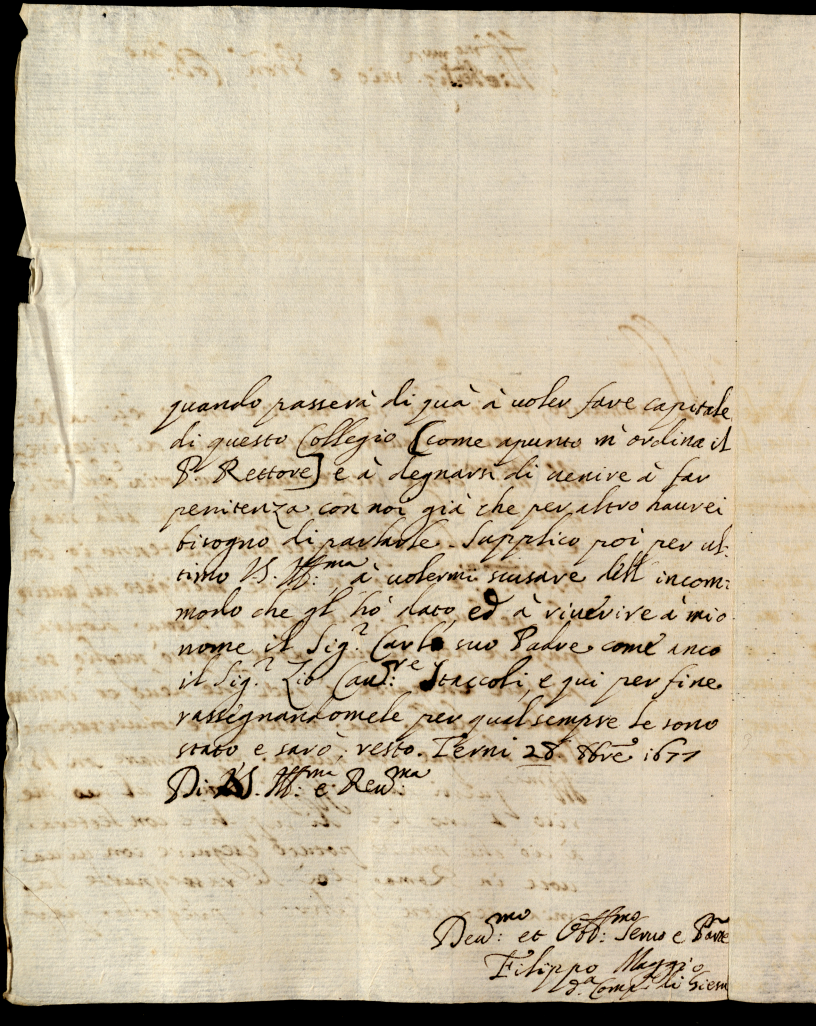 quando passerà di quà à voler fare capitale
di questo Collegio [come apunto m'ordina il
P. Rettore] e à degnarsi di uenire à far
penitenza con noi già che per altro haurei
bisogno di parlarle. Supplico poi per ul:
timo V.S. Ill:ma à uolermi scusare dell incom:
modo che gl' hò dato, ed à riuerire à mio
nome il Sig.r Carlo suo Padre come anco
il Sig.r Zio Cau:re Staccoli, e qui per fine
rassegnandomele per qual sempre le sono
stato e sarò, resto. Terni 28 8bre 1677
Di V.S. Ill:ma e Reu:ma
Deu:mo et Obb:mo Seruo e Parte
Filippo Maggio
d.a Comp.a di Giesu